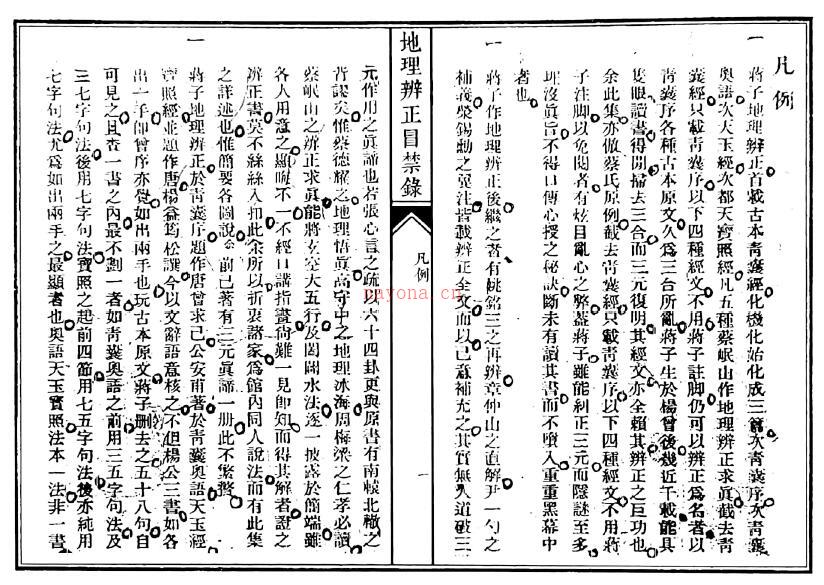 凡例
一 蔣子地理辨正首載古本青囊經化機化始化成三篇次青囊序次青囊
奧語次天玉經次都天寶照經凡五種蔡岷山作地理辨正求眞截去青
囊經只載青囊序以下四種經文不用蔣子註脚仍可以辨正爲名者以
青囊序各種古本原文久爲三合所亂蔣子生於楊曾後幾近千載能具
隻眼讀書得開掃去三合而三元復明其經文亦全賴其辨正之巨功也
余此集亦倣蔡氏原例截去青囊經只載青囊序以下四種經文不用蔣
子注脚以免閱者有炫目亂心之弊蓋蔣子雖能糾正三元而隱謎至多
埋沒眞旨不得口傳心授之秘訣斷未有讀其書而不墮入重重黑幕中
者也
一 蔣子作地理辨正後繼之者有姚銘三之再辨章仲山之直解尹一勺之
補義榮錫勳之翼注皆載辨正全文而以己意補充之其實無人道破三
地理辨正目禁錄
凡例
一
元作用之眞諦也若張心言之疏以六十四卦更與原書有南轅北轍之
背謬矣惟蔡德耀之地理悟眞高守中之地理冰海周梅梁之仁孝必讀
蔡岷山之辨正求眞能將玄空大五行及闔闢水法逐一披露於簡端雖
各人用意之顯晦不一不經口講指畫尚難一見卽知而得其解者證之
辨正書莫不絲絲入扣此余所以折衷諸家爲館內同人說法而有此集
之詳述也惟簡要各圖說 前已著有三元眞諦一册此不繁贅
一 蔣子地理辨正於青囊序題作唐曾求己公安甫著於青囊奧語天玉經
寶照經並題作唐楊益筠松譔今以文辭語意核之不但楊公三書如各
出一子卽曾序亦覺如出兩手也玩古本原文蔣子删去之五十八句自
可見之且查一書之內最不劃一者如青囊奧語之前用三五字句法及
三七字句法後用七字句法寶照之起前四節用七五字句法後亦純用
七字句法尤爲如出兩手之最顯者也奧語天玉寶照法本一法非一書
nayona.cn